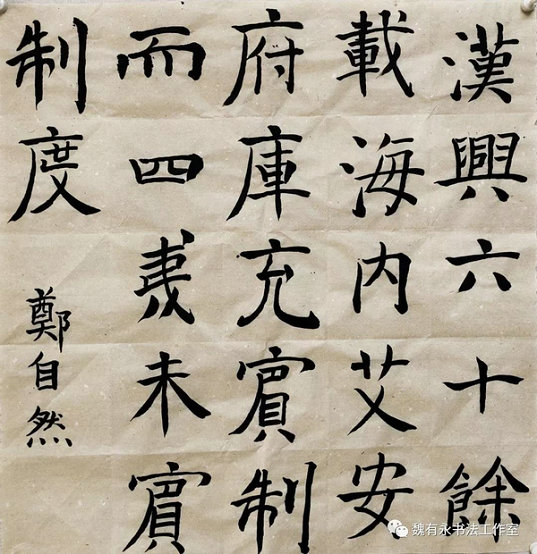 漢興六十餘
載海内艾安
府庫充實制
而四夷未賓
制度
鄭自然
魏有永书法工作室